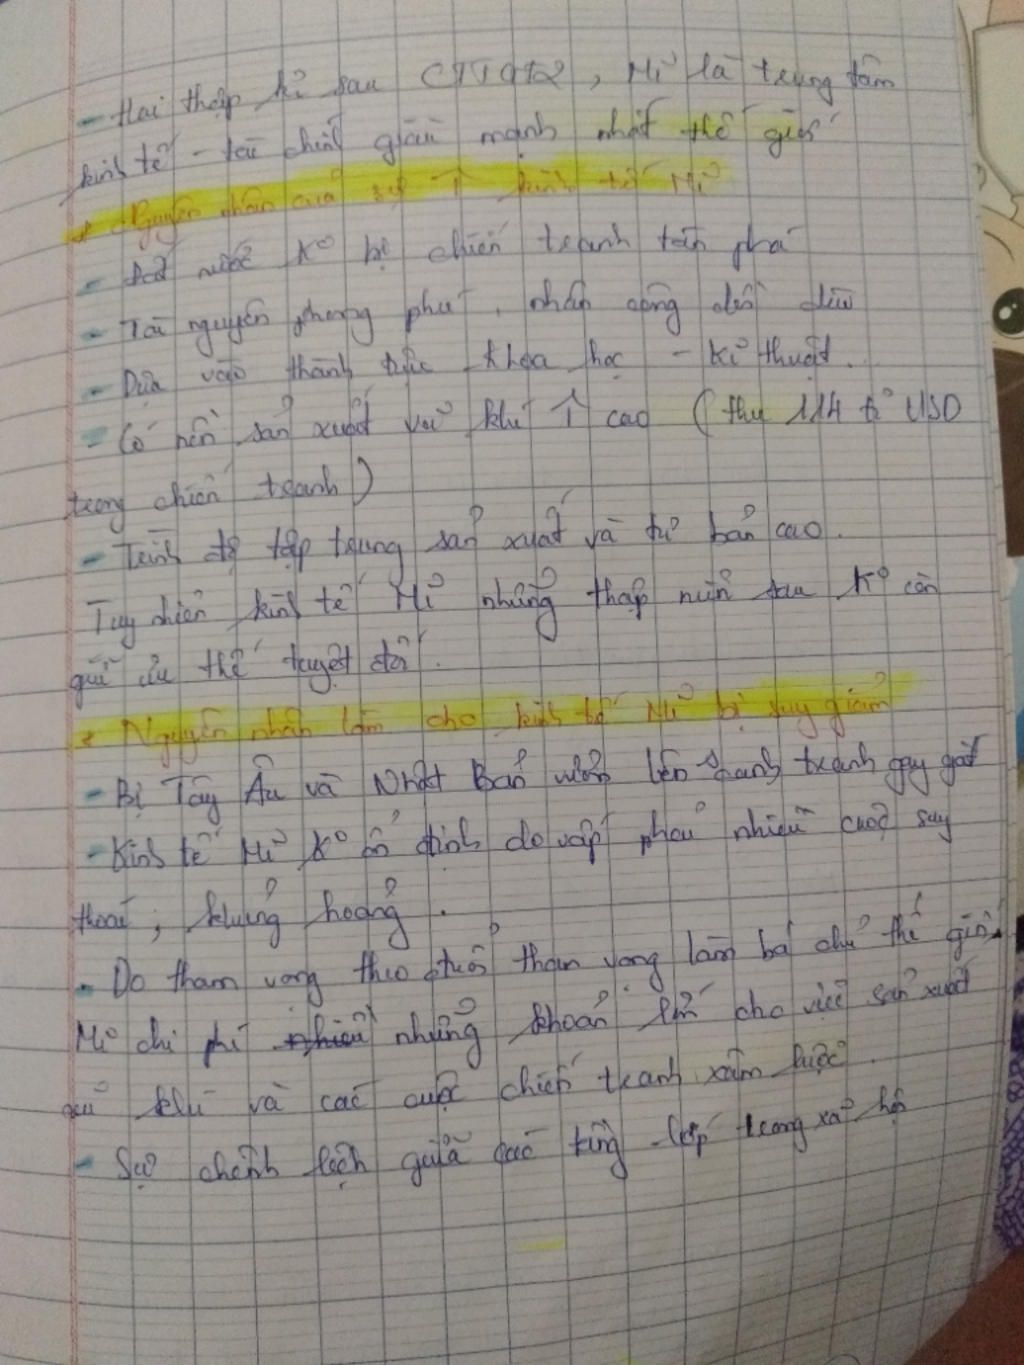 - Hai thập kỉ sau CTTGT2, Mĩ là trung tâm
kinh tế - tài chính giàu mạnh nhất thế giới
* Nguyên nhân của sự ↑ kinh tế Mĩ
- Đất nước K° bị chiến tranh tàn phá
- Tài nguyên phong phú, nhân công dồi dào
- Dựa vào thành tựu khoa học - kĩ thuật.
- Có nền sản xuất vũ khí ↑ cao (thu 114 tỉ USD
trong chiến tranh)
- Trình độ tập trung sản xuất và tư bản cao.
Tuy nhiên kinh tế Mĩ những thập niên sau K° còn
giữ ưu thế tuyệt đối.
* Nguyên nhân làm cho kinh tế Mĩ bị suy giảm
- Bị Tây Âu và Nhật Bản vươn lên cạnh tranh gay gắt
- Kinh tế Mĩ K° ổn định do vấp phải nhiều cuộc suy
thoái, khủng hoảng.
- Do tham vọng theo đuổi tham vọng làm bá chủ thế giới,
Mĩ chi phí những khoản lớn cho việc sản xuất
vũ khí và các cuộc chiến tranh xâm lược.
- Sự chênh lệch giữa các tầng lớp trong xã hội